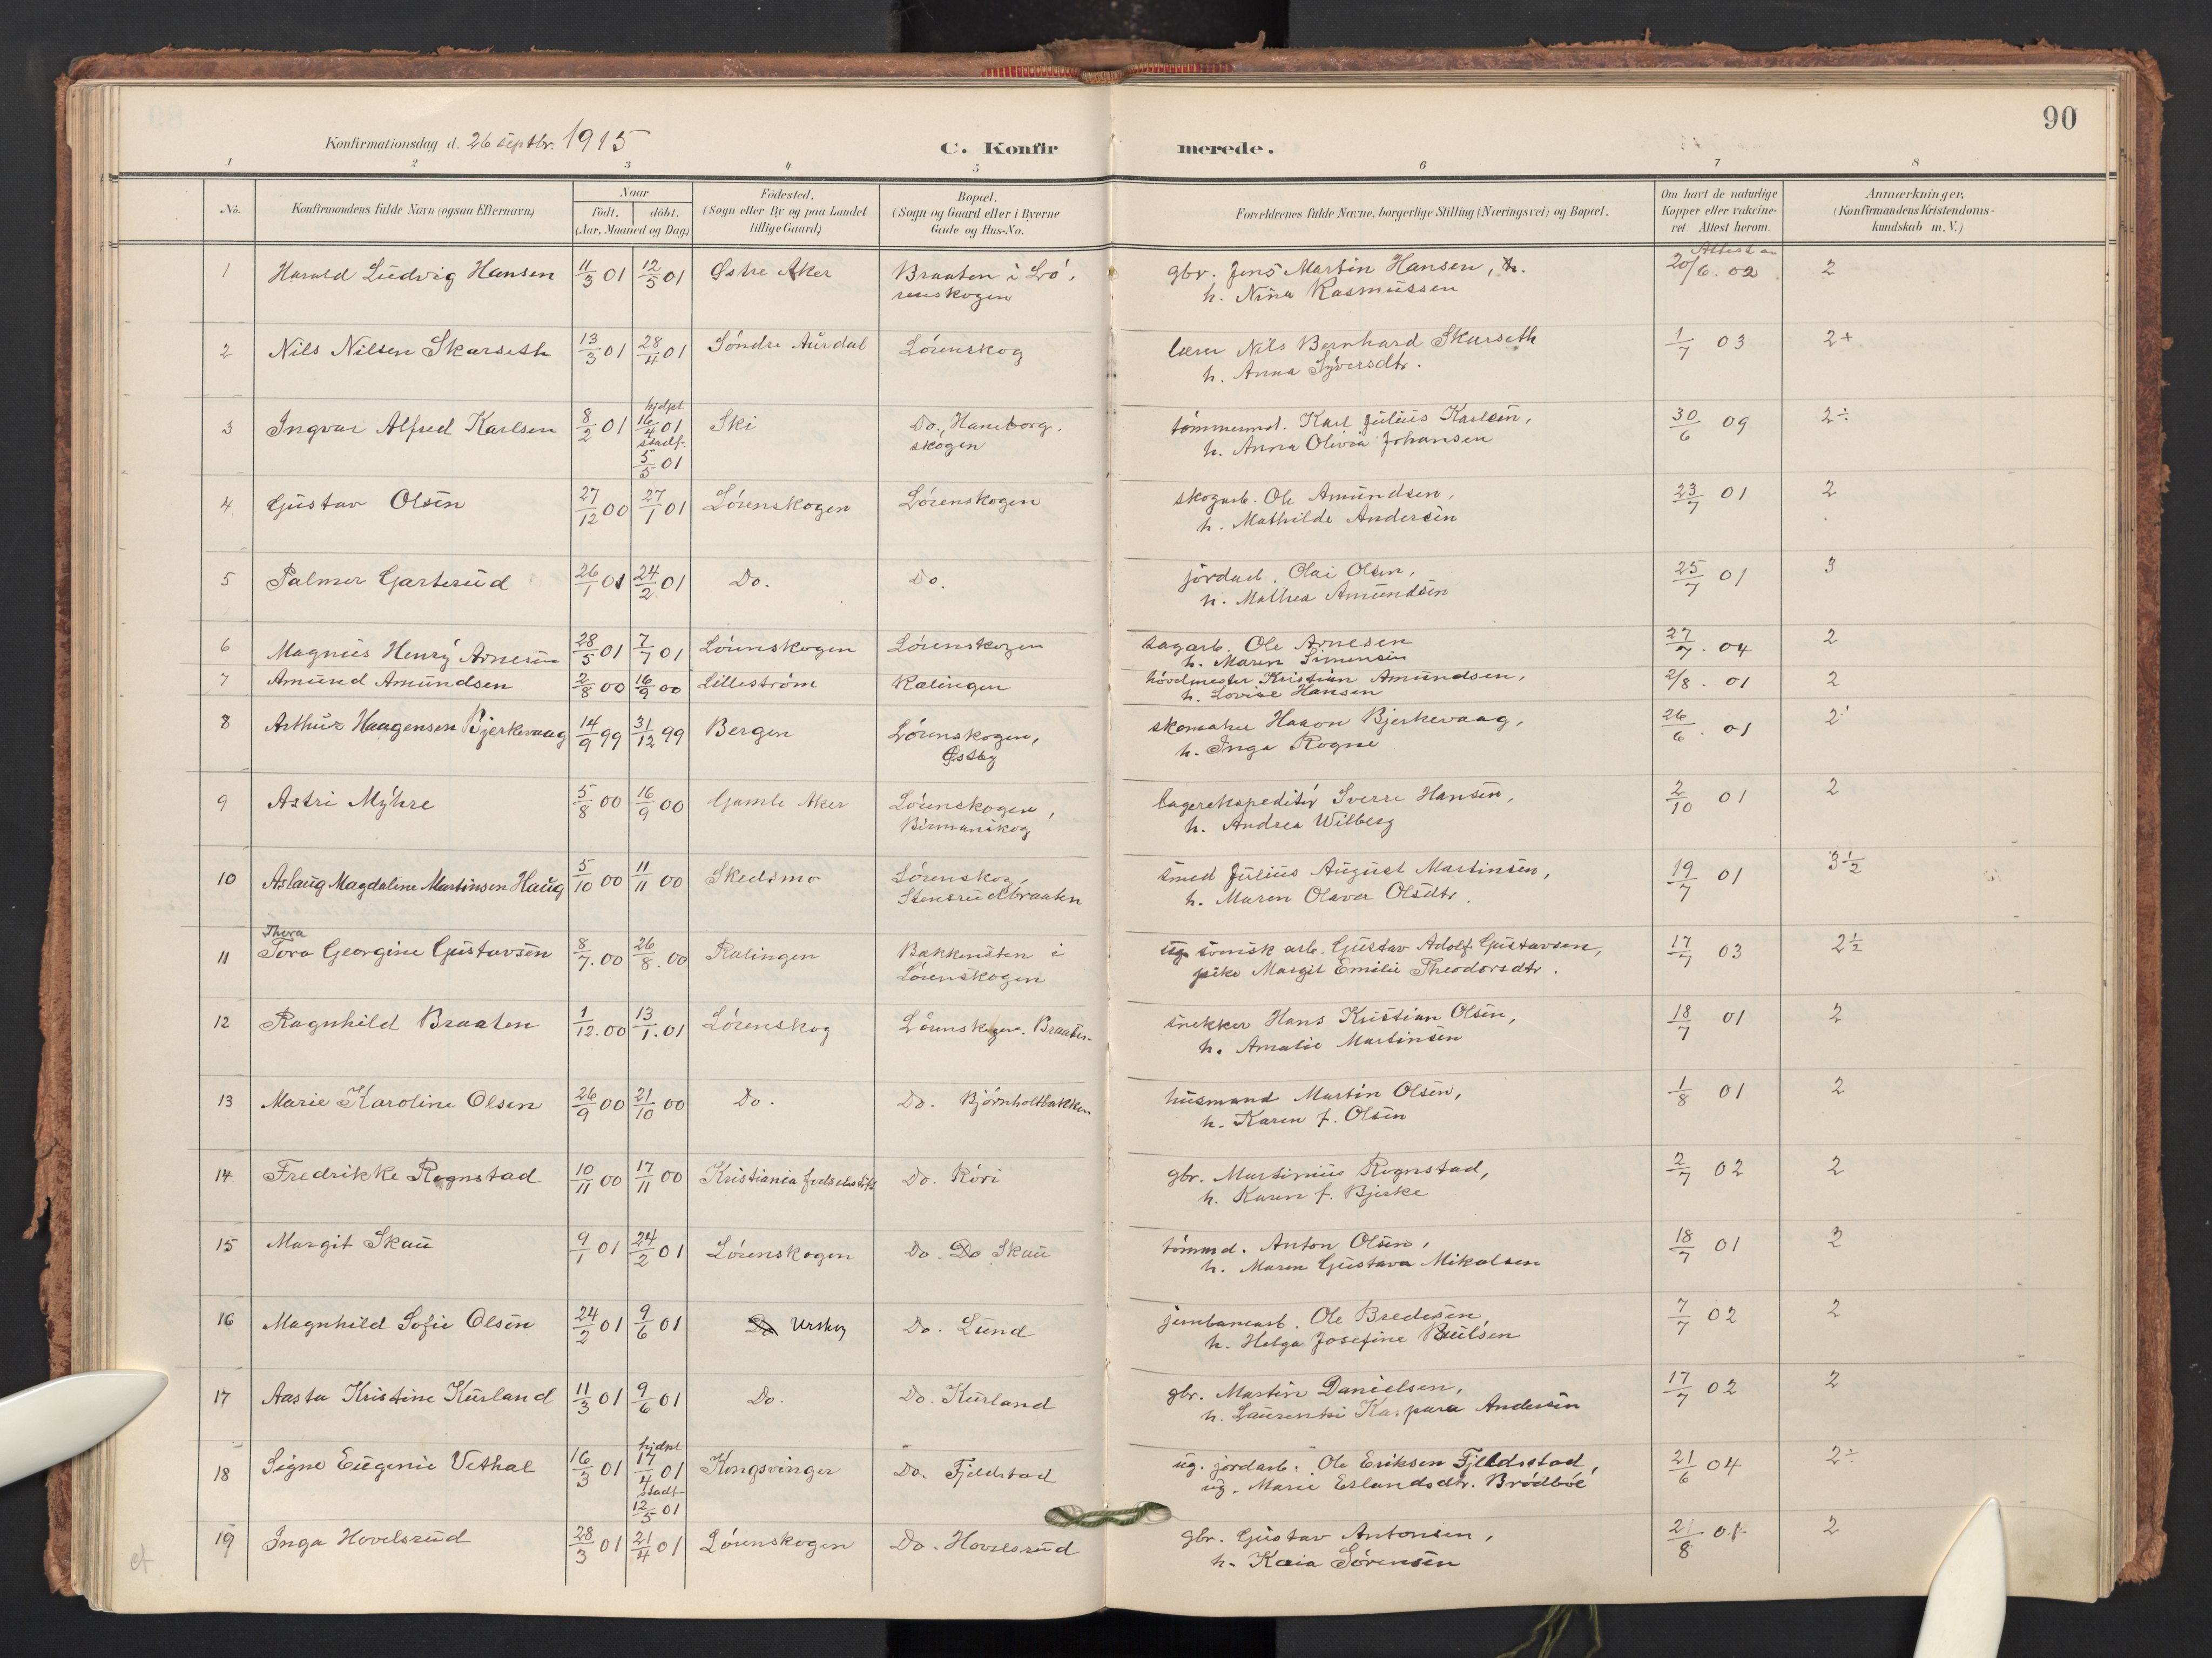 90
Konfirmationsdag d. 26 septbr. 1915
C. Konfirmerede.
1 2 3 4 5 6 7 8
No.
Konfirmandens fulde Navn (ogsaa Efternavn)
Naar
födt. döbt.
(Aar, Maaned og Dag)
Födested.
(Sogn eller By og paa Landet
tillige Gaard)
Bopæl.
(Sogn og Gaard eller i Byerne
Gade og Hus-No.
Forældrenes fulde Navne, borgerlige Stilling (Næringsvei) og Bopæl.
Om havt de naturlige
Kopper eller vakcine-
ret Attest herom.
Anmærkninger,
(Konfirmandens Kristendoms-
kundskab m. V.)
1 Harald Ludvig Hansen 11/3 01 12/5 01 Østre Aker Braaten i Lö- gbr. Jens Martin Hansen, Attest av 20/6. 02 2
renskogen h. Nina Rasmussen
2 Nils Nilsen Skarseth 13/3 01 28/4 01 Söndre Aurdal Lörenskog lærer Nils Bernhard Skarseth 1/7 03 2+
h. Anna Syversdtr.
3 Ingvar Alfred Karlsen 8/2 01 hjdpt 16/4 01 Ski Do., Hamborg- tömmermd. Karl Julius Karlsen, 30/6 09 2÷
stadf. 5/5 01 skogen h. Anna Olivia Johansen
4 Gustav Olsen 27/12 00 27/1 01 Lörenskogen Lörenskogen skogarb. Ole Amundsen, 23/7 01 2
h. Mathilde Andersen
5 Palmer Garterud 26/1 01 24/2 01 Do. Do. jordarb. Olai Olsen, 25/7 01 3
h. Mathea Amundsen
6 Magnus Henry Arnesen 28/5 01 7/7 01 Lörenskogen Lörenskogen sagarb. Ole Arnesen 27/7. 04 2
h. Maren Simensen
7 Amund Amundsen 2/8 00 16/9 00 Lilleström Rælingen hövelmester Kristian Amundsen, 2/8. 01 2
h. Lovise Hansen
8 Arthur Haagensen Bjerkevaag 14/9 99 31/12 99 Bergen Lörenskogen, skomaker Haaon Bjerkevaag, 26/6. 01 2
Østby h. Inga Rogne
9 Astri Myhre 5/8 00 16/9 00 Gamle Aker Lörenskogen, lagerekspeditör Sverre Hansen, 2/10 01 2
h. Andrea Wilberg
10 Aslaug Magdalene Martinsen Haug 5/10 00 11/11 00 Skedsmo Lörenskog, smed Julius August Martinsen, 19/7 01 3½
Stensrudbraaten h. Maren Olava Olsdtr.
Thora
11 Tora Georgine Gustavsen 8/7. 00 26/8. 00 Rælingen Bakkensten i ug. svensk arb. Gustav Adolf Gustavsen, 17/7 03 2½
Lörenskogen pike Margit Emilie Theodorsdtr.
12 Ragnhild Braaten 1/12. 00 13/1. 01 Lörenskog Lörenskogen. Braaten snekker Hans Kristian Olsen, 18/7 01 2
h. Amalie Martinsen
13 Marie Karoline Olsen 26/9 00 21/10 00 Do. Do. Björnholtbakken husmand Martin Olsen, 1/8 01 2
h. Karen f. Olsen
14 Fredrikke Rognstad 10/11 00 17/11 00 Kristiania födselsstift. Do. Röri gbr. Martinius Rognstad, 2/7 02 2
h. Karen f. Bjerke
15 Margit Skau 9/1 01 24/2 01 Lörenskogen Do. Do Skau tömmd. Anton Olsen, 18/7 01 2
h. Maren Gustava Mikalsen
16 Magnhild Sofie Olsen 24/2 01 9/6 01 Do Urskog Do. Lund jernbanearb. Ole Bredesen, 7/7 02 2
h. Helga Josefine Paulsen
17 Aasta Kristine Kurland 11/3 01 9/6 01 Do. Do. Kurland gbr. Martin Danielsen, 17/7 02 2
h. Laurentse Kaspara Andersen
18 Signe Eugenie Vethal 16/3 01 hjdpt 17/4 01 Kongsvinger Do. Fjeldstad ug. jordarb. Ole Eriksen Fjeldsstad, 21/6 04 2÷
stadf. 12/5 01 ug. Marie Erlandsdtr. Brödböl
19 Inga Hovelsrud 28/3 01 21/4 01 Lörenskogen Do. Hovelsrud gbr. Gustav Antonsen, 21/8 01 2
h. Kaia Sörensen